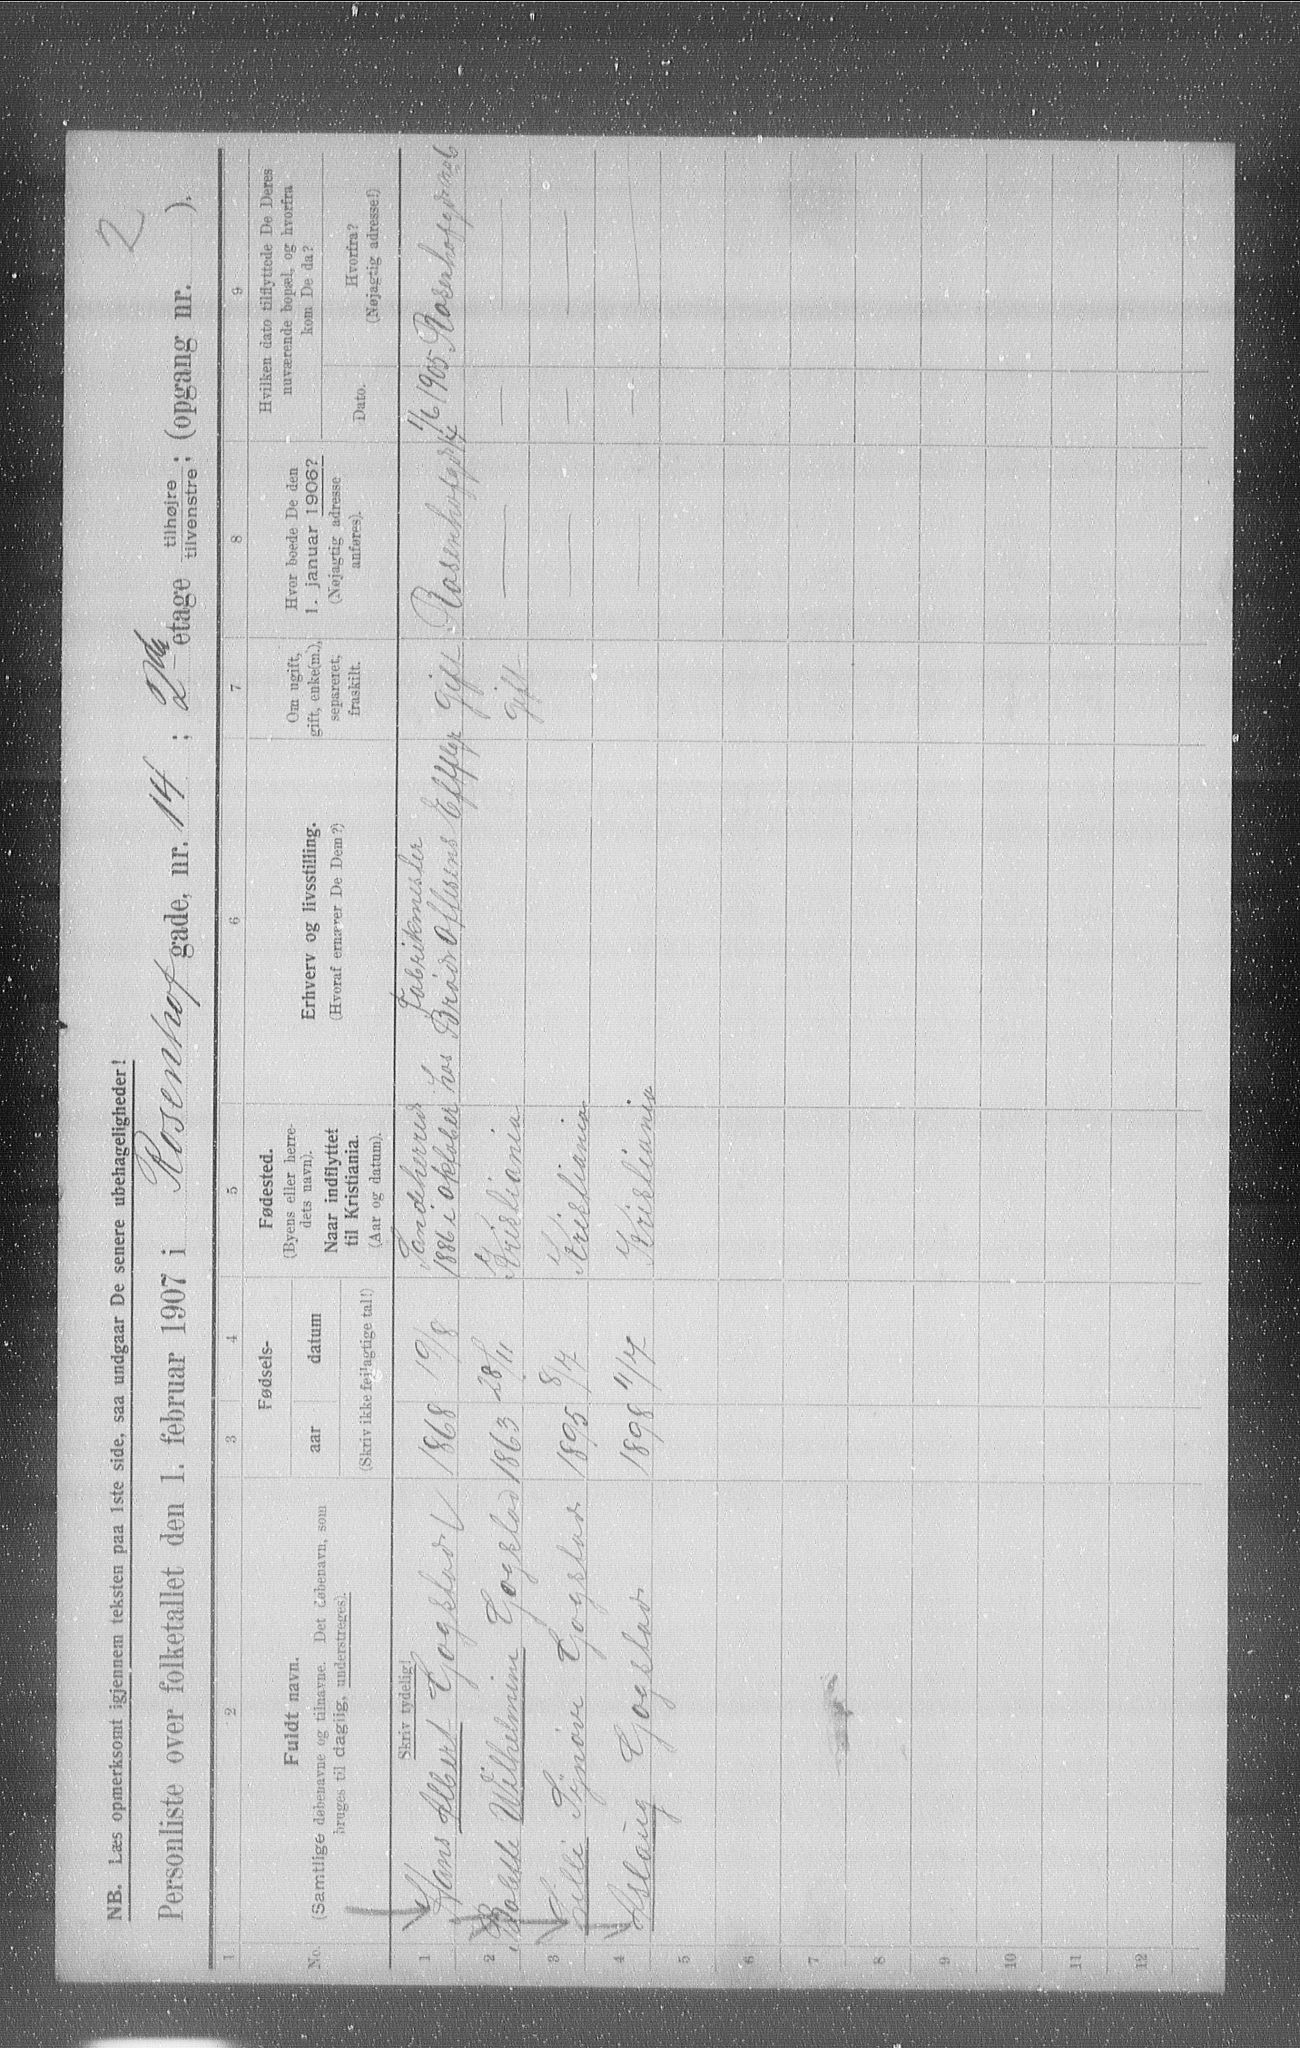 2
NB. Læs opmerksomt igjennem teksten paa 1ste side, saa undgaar De senere ubehageligheder!
Personliste over folketallet den 1. februar 1907 i Rosenhof gade, nr. 14 ; 2den etage tilhøjre tilvenstre ; (opgang nr. ).
1 2 3 4 5 6 7 8 9
No.
Fuldt navn.
(Samtlige døbenavne og tilnavne. Det døbenavn, som
bruges til daglig, understreges).
Fødsels-
aar datum
(Skriv ikke fejlagtige tal!)
Fødested.
(Byens eller herre-
dets navn).
Naar indflyttet
til Kristiania.
(Aar og datum).
Erhverv og livsstilling.
(Hvoraf ernærer De Dem?)
Om ugift,
gift, enke(m.),
separeret,
fraskilt.
Hvor boede De den
1. januar 1906?
(Nøjagtig adresse
anføres).
Hvilken dato tilflyttede De Deres
nuværende bopæl, og hvorfra
kom De da?
Dato.
Hvorfra?
(Nøjagtig adresse!)
Skriv tydelig!
1 Hans Albert Gogstad 1868 19/8 Sandeherred 1886 i oktober Fabrikmester hos Brød Offesens Efflgr gift Rosenhofgd 14 1/6 1905 Rosenhofgd no 6
2 Bolette Wilhelmine Gogstad 1863 28/11 Kristiania gift — — —
3 Lilli Synøve Gogstad 1895 8/7 Kristiania — — —
4 Aslaug Gogstad 1898 1/7 Kristiania — — —
5
6
7
8
9
10
11
12